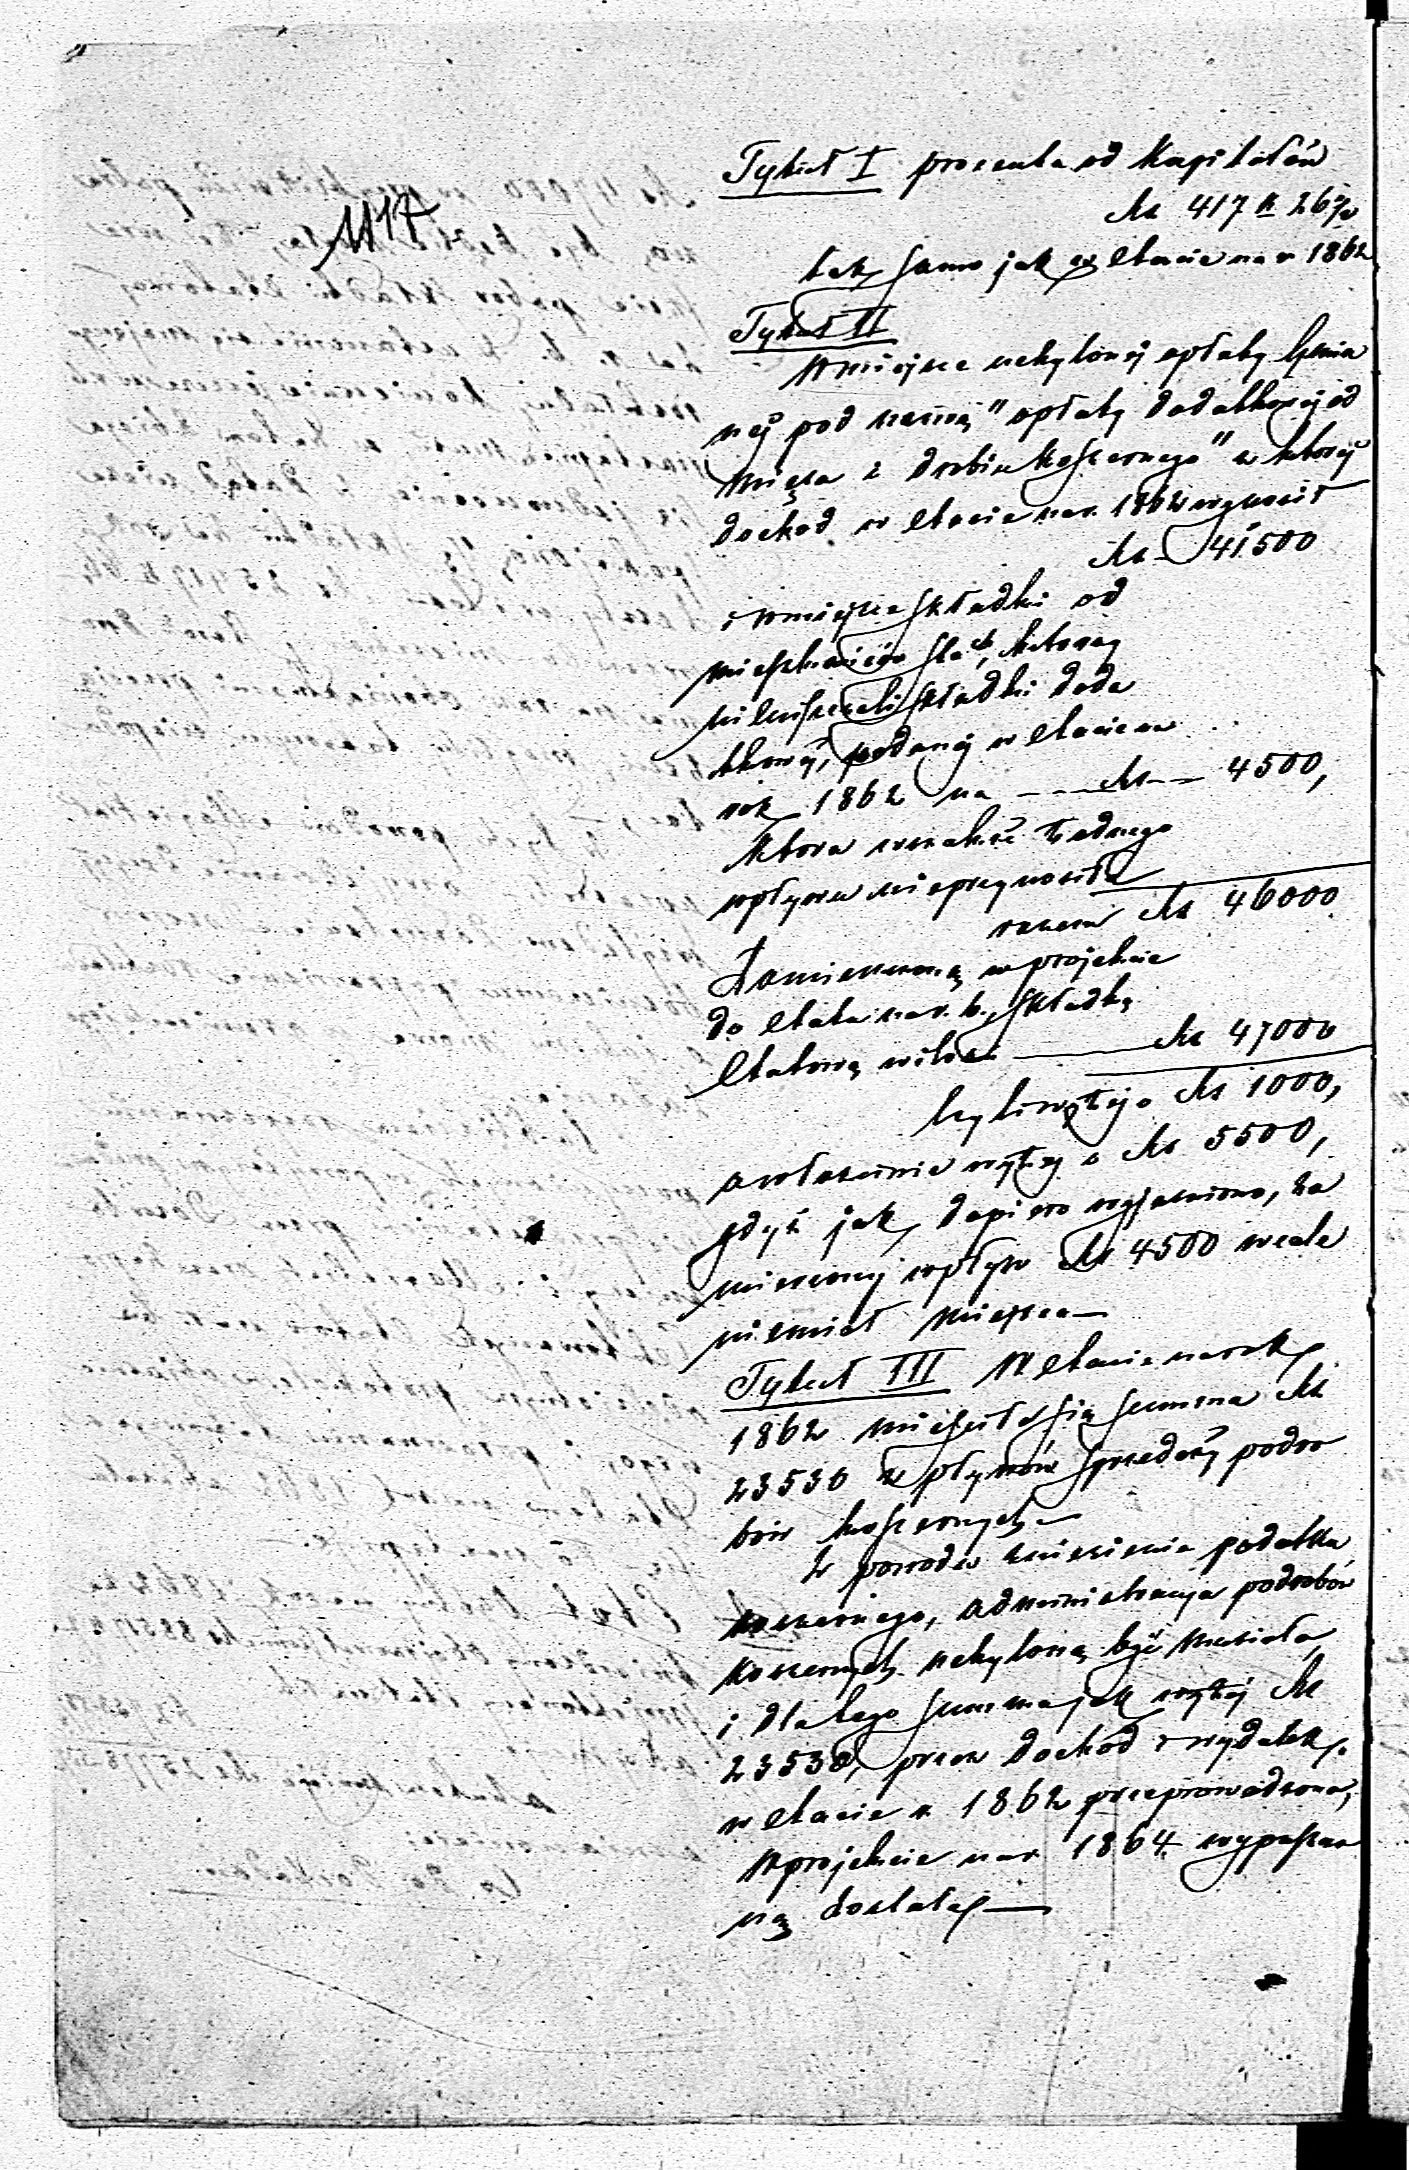 1117
Tytuł I procenta od Kapitałów
Rs 417 k 26½
tak samo jak w Etacie na r 1862
Tytuł II
W miejsce uchylonej opłaty Gmin
nej pod nazwą "opłaty dodatkowej od
mięsa i drobiu koszernego" z której
dochod w Etacie na r. 1862 wynosił
Rs - 41500
i w miejsce składki od
mieszkańców którzy
składki doda
tkowej, podanej w Etacie na
rok 1862 na - - - Rs - - 4500,
Która wszakże żadnego
wpływu nie przynosiła
razem Rs 46000
Zamieszczoną w projekcie
do Etatu na r. b. składkę
Etatową w ilości Rs 47000
czyli wyżej o Rs 1000,
a właściwie wyżej o Rs 5500,
gdyż jak dopiero wyjaśniono, za
mierzony wpływ Rs 4500 wcale
nie miał miejsca—
Tytuł III W Etacie na rok
1862 mieściła się summa Rs
23530 z wpływów sprzedaży podro
bów koszernych—
Z powodu zniesienia podatku
koszernego, administracya podrobów
koszernych uchyloną być musiała,
i dla tego summa jak wyżej Rs
23530, przez dochód i wydatek
w Etacie r. 1862 przeprowadzona,
w projekcie na r. 1864 wypuszczo
ną została—